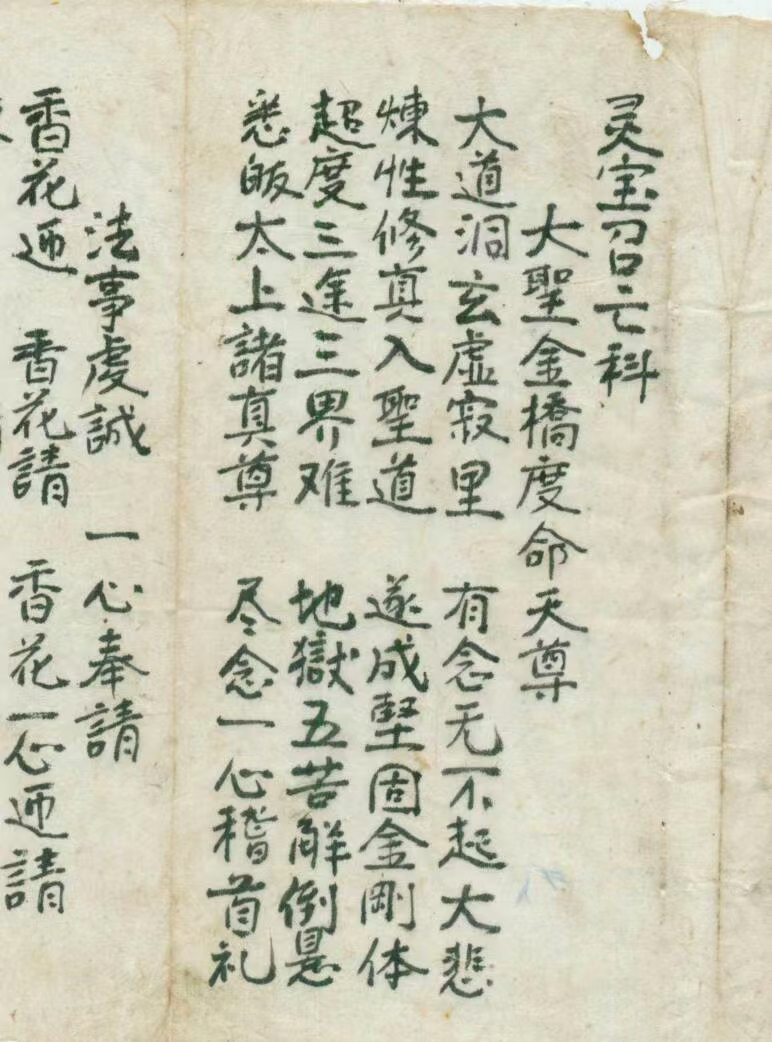 灵宝召亡科
大聖金橋度命天尊
大道洞玄虚寂里 有念无不起大悲
煉性修真入聖道 遂成堅固金剛体
超度三途三界难 地獄五苦解倒悬
悉皈太上諸真尊 尽念一心稽首礼
法事虔誠 一心奉請
香花迊 香花請 香花一心迊請